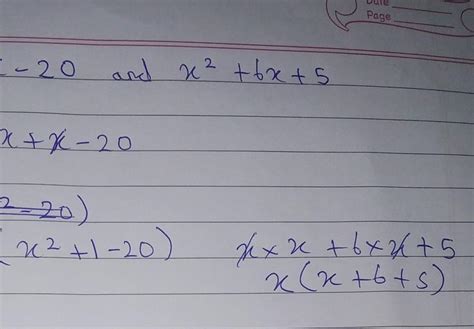 Date
Page
- 20 and x² + 6x + 5
x + x - 20
2 - 20)
x² + 1 - 20) x × x + 6 × x + 5
x(x + 6 + 5)